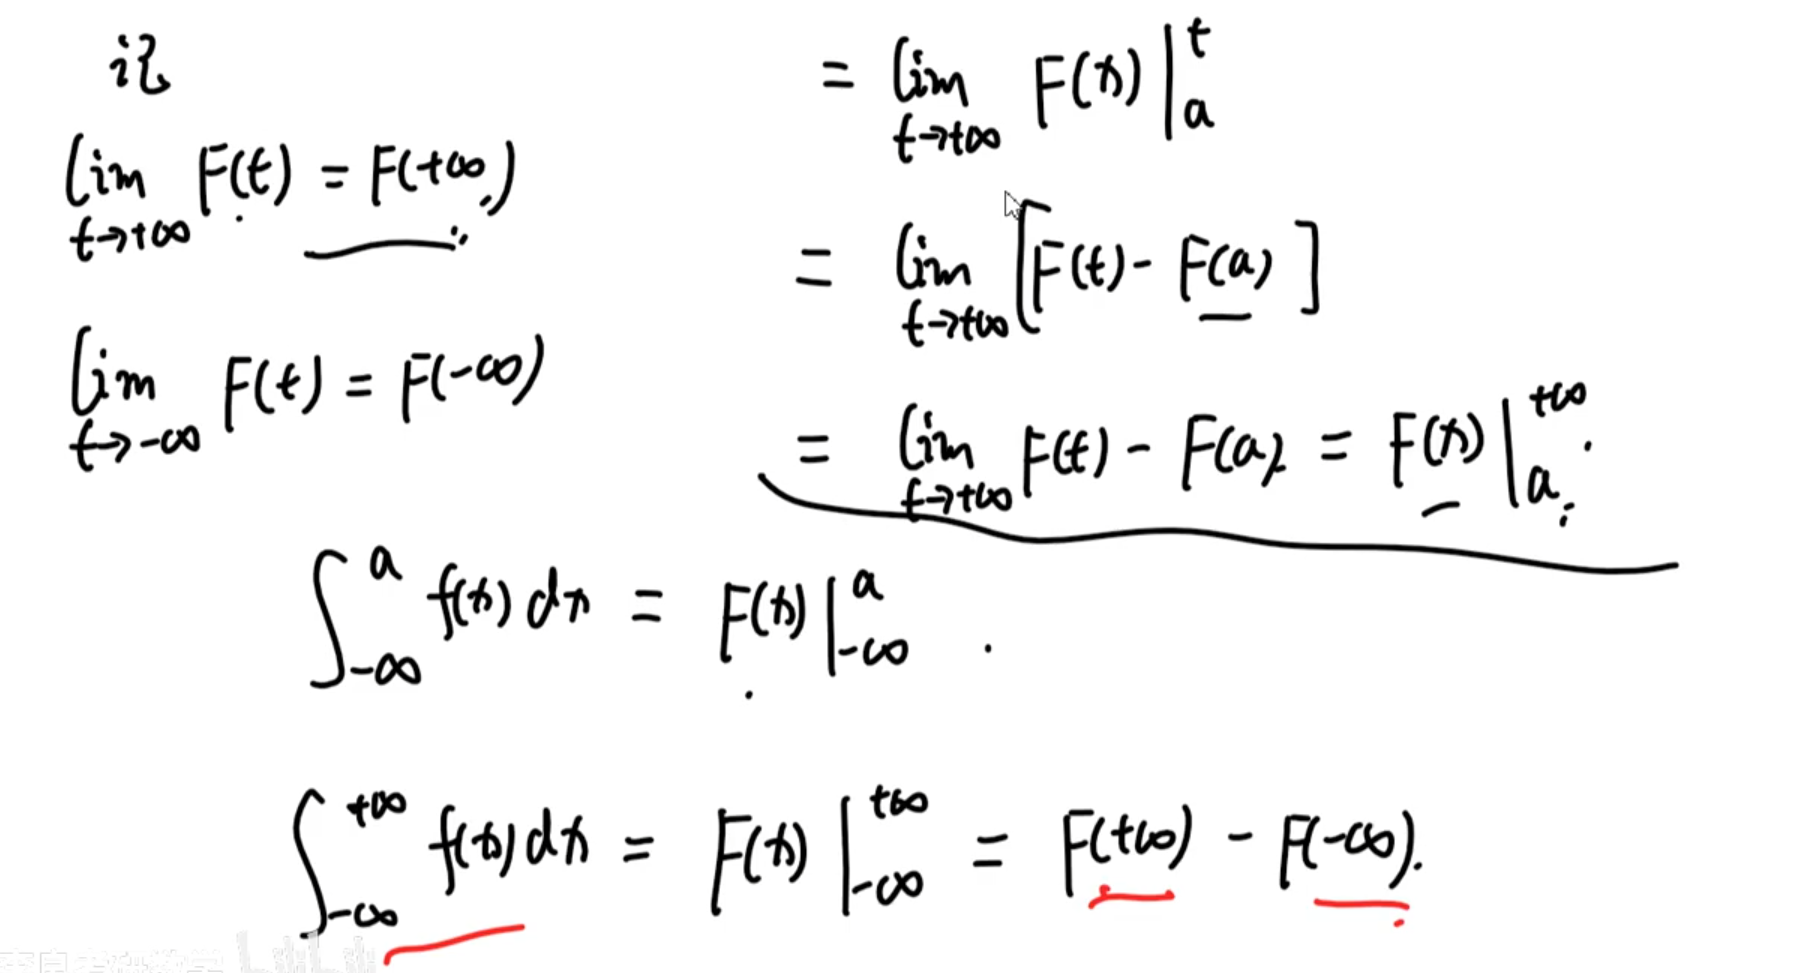 记
lim t→+∞ F(t) = F(+∞)
lim t→-∞ F(t) = F(-∞)
= lim t→+∞ F(x) |_a^t
= lim t→+∞ [F(t) - F(a)]
= lim t→+∞ F(t) - F(a) = F(x) |_a^{+∞}.
∫_{-∞}^a f(x) dx = F(x) |_{-∞}^a .
∫_{-∞}^{+∞} f(x) dx = F(x) |_{-∞}^{+∞} = F(+∞) - F(-∞).